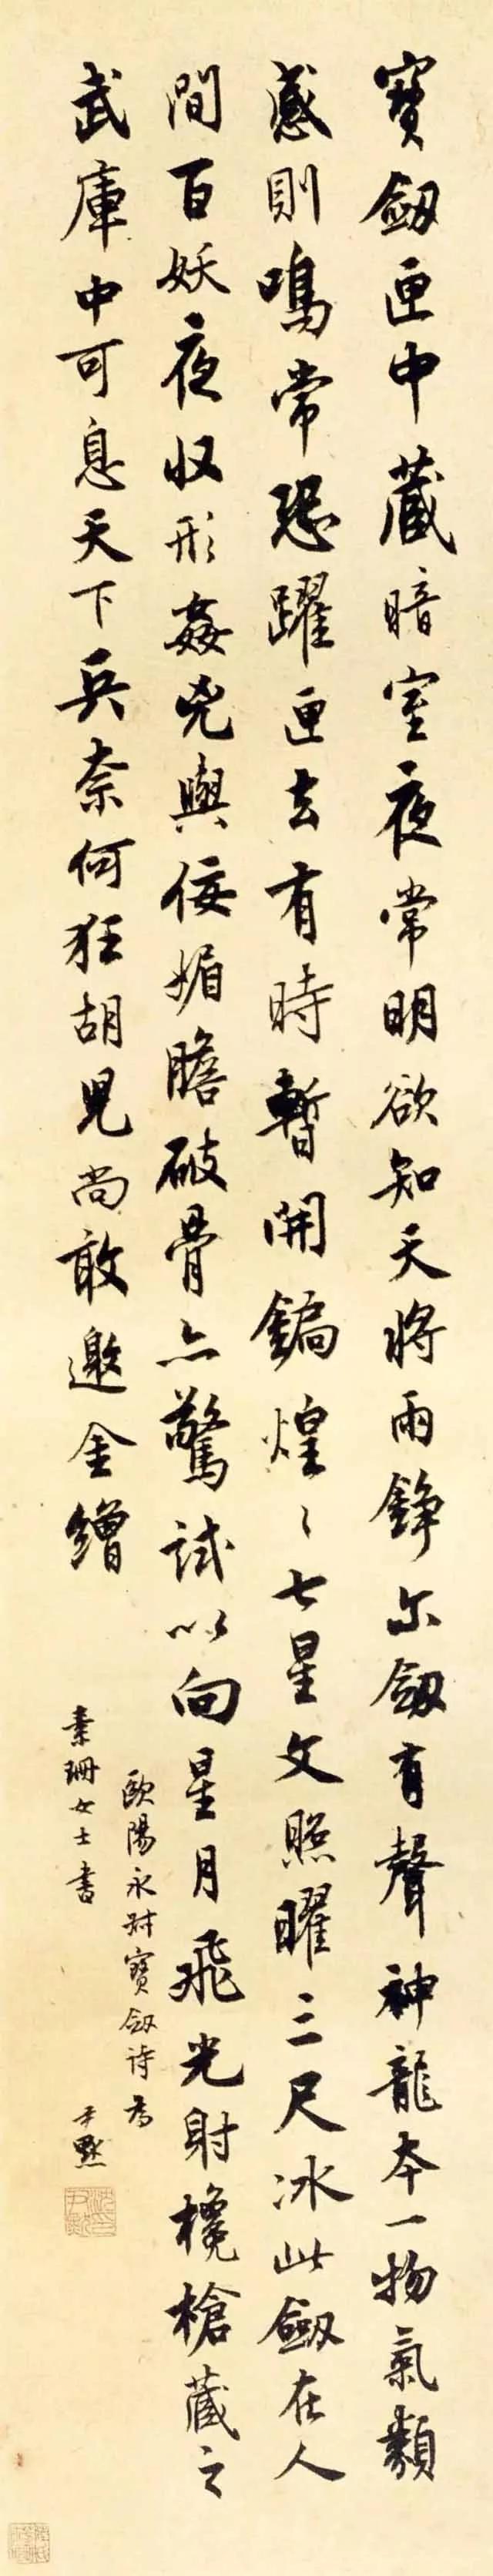 寶劔匣中藏暗室夜常明欲知天將雨錚尓劔有聲神龍本一物氣類
感則鳴常恐躍匣去有時暫開鐍煌〻七星文照曜三尺冰此劔在人
間百妖夜收形姦兇與佞媚膽破骨亦驚試以向星月飛光射欃槍藏之
武庫中可息天下兵奈何狂胡兒尚敢邀金繒
歐陽永叔寶劔诗為
素珊女士書
尹默